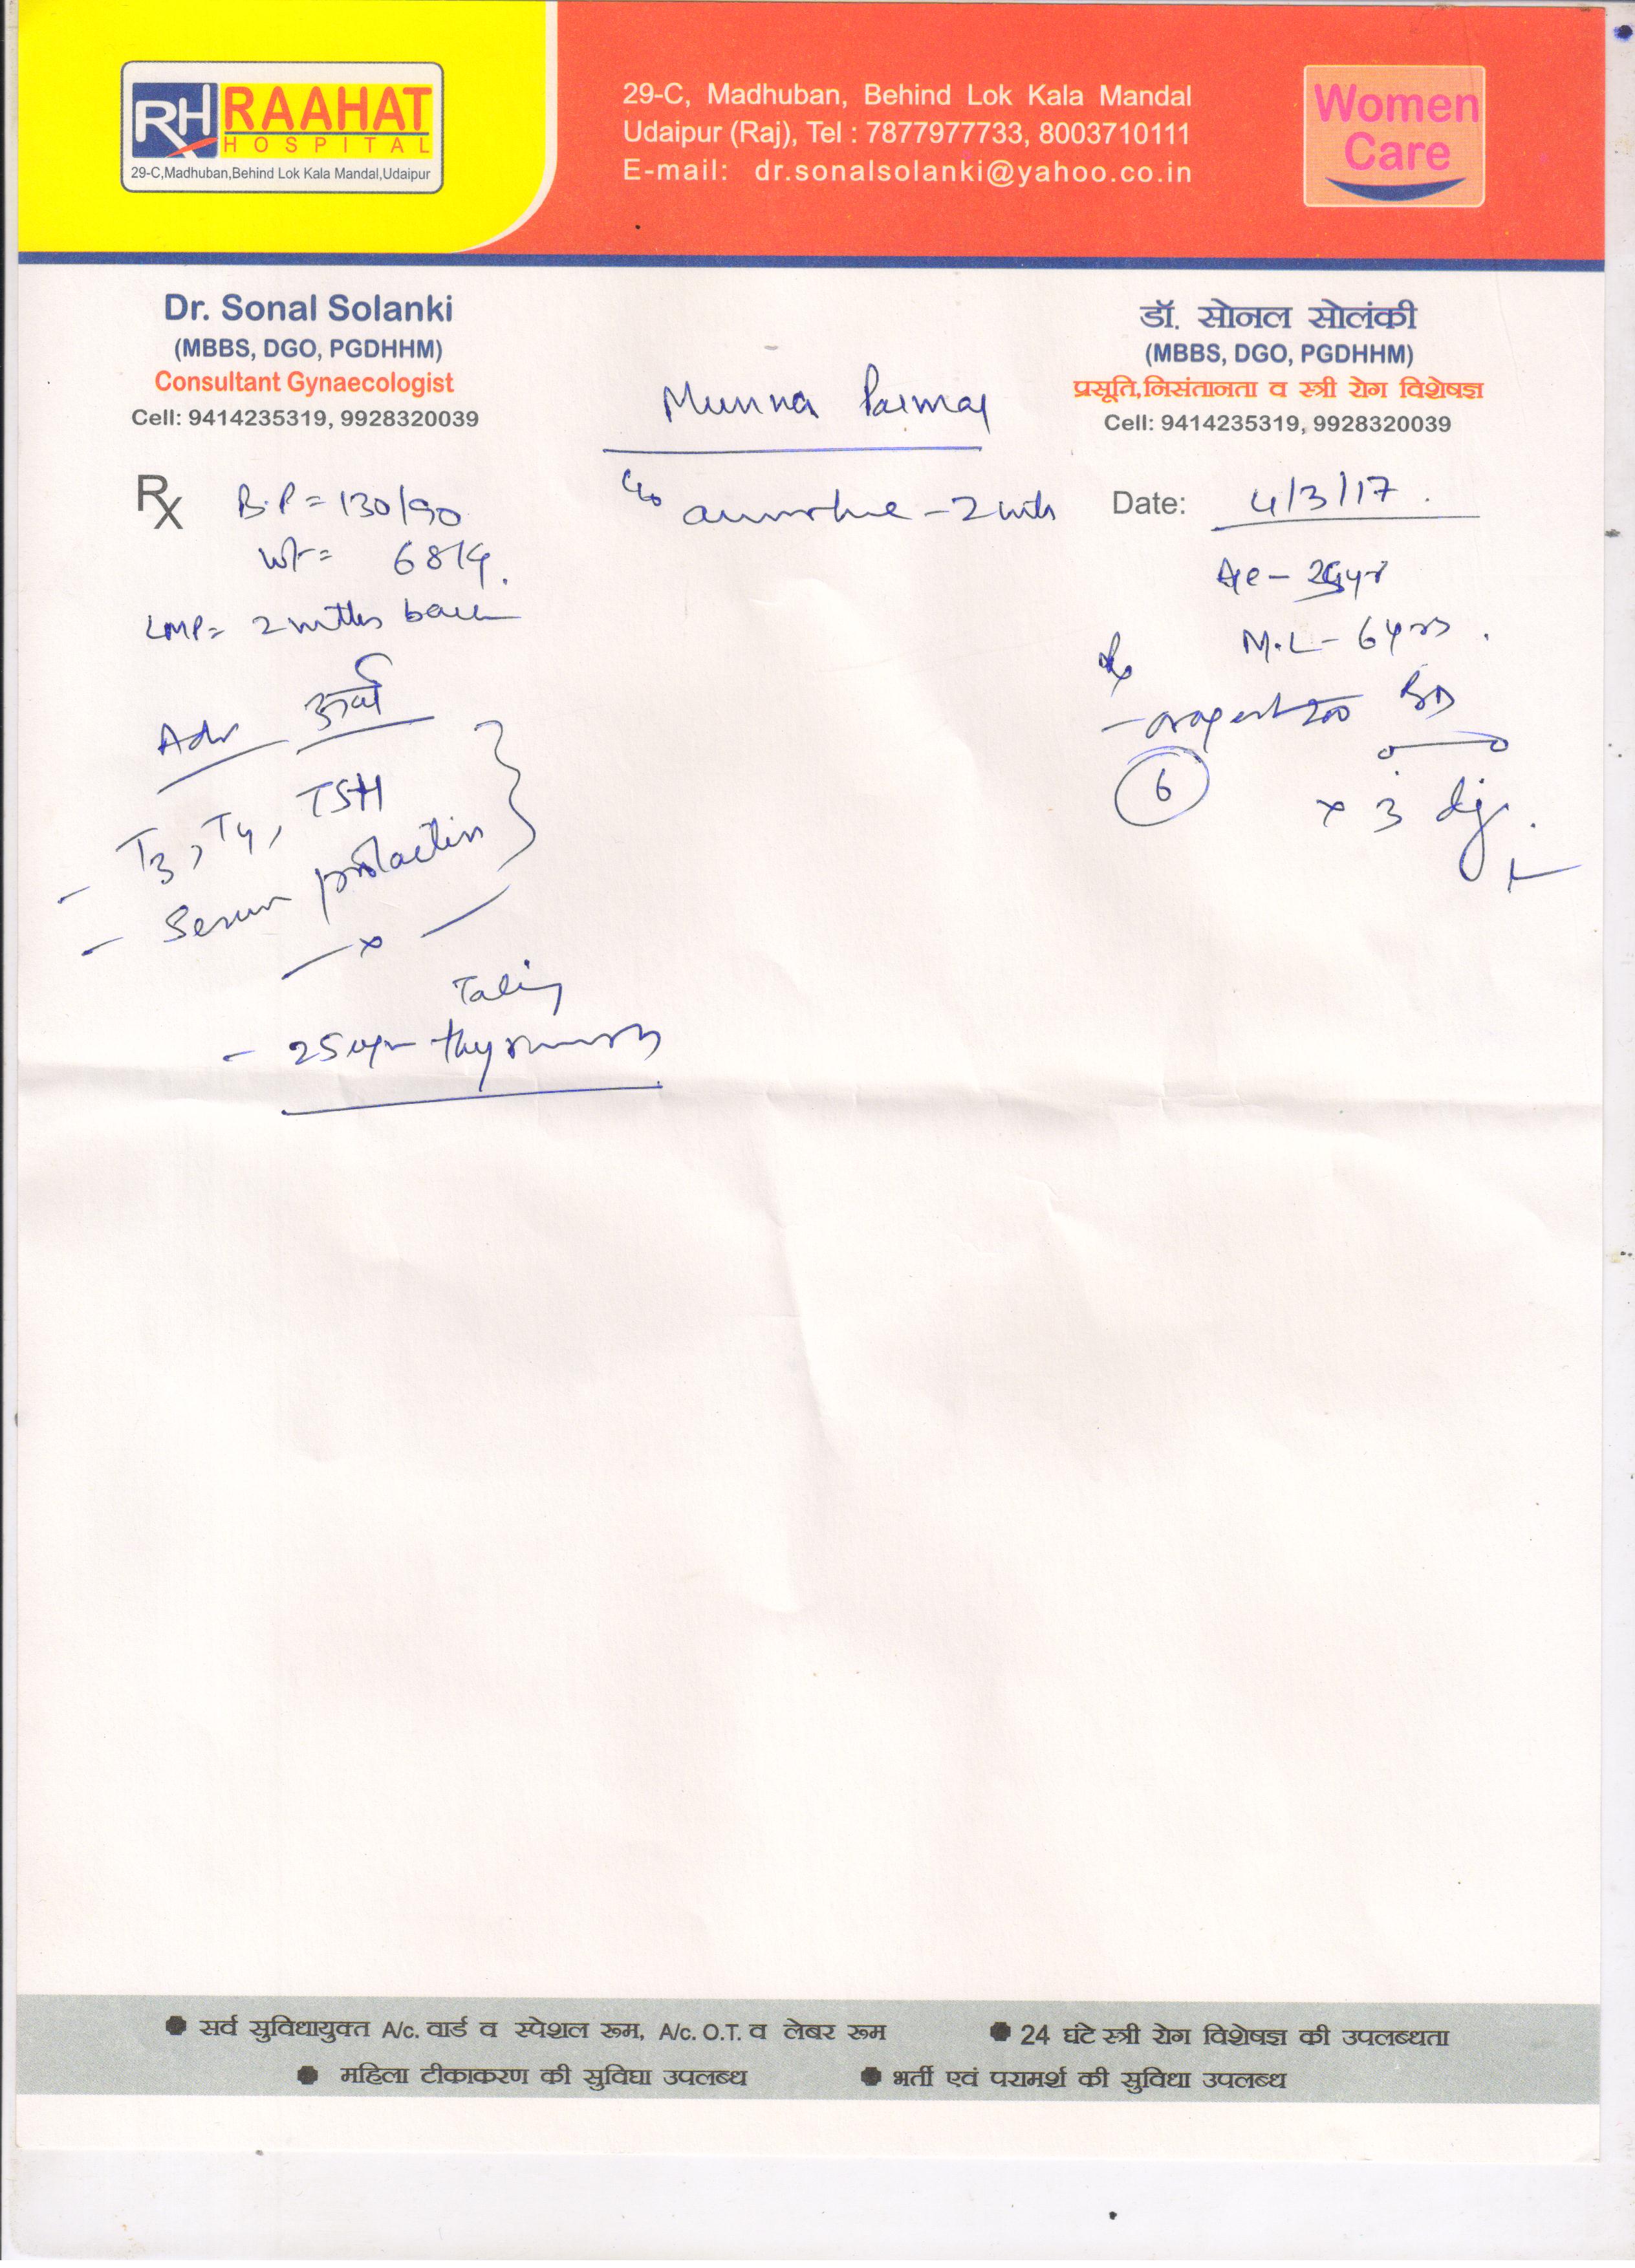 RH RAAHAT
HOSPITAL
29-C,Madhuban,Behind Lok Kala Mandal,Udaipur
29-C, Madhuban, Behind Lok Kala Mandal
Udaipur (Raj), Tel : 7877977733, 8003710111
E-mail: dr.sonalsolanki@yahoo.co.in
Women
Care
Dr. Sonal Solanki
(MBBS, DGO, PGDHHM)
Consultant Gynaecologist
Cell: 9414235319, 9928320039
डॉ. सोनल सोलंकी
(MBBS, DGO, PGDHHM)
प्रसूति,निसंतानता व स्त्री रोग विशेषज्ञ
Cell: 9414235319, 9928320039
Munna Parmar
Rx
B.P = 130/90
Wt =
LMP = 2 mths back
c/o - 2 mths
Date: 4/3/17.
Age -
M.L - 6 yrs.
Rx
200 BD
6
x 3
Adv
- T3, T4, TSH
- Serum prolactin
x
Taking
- 25
सर्व सुविधायुक्त A/c. वार्ड व स्पेशल रूम, A/c. O.T. व लेबर रूम
24 घंटे स्त्री रोग विशेषज्ञ की उपलब्धता
महिला टीकाकरण की सुविधा उपलब्ध
भर्ती एवं परामर्श की सुविधा उपलब्ध